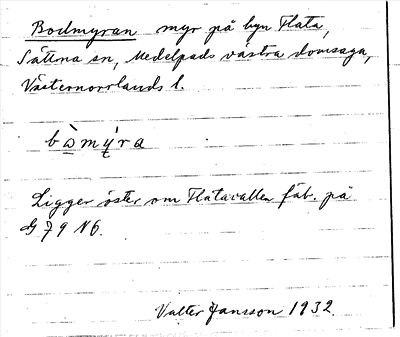 Bodmyran myr på byn Flata,
Sättna sn, Medelpads västra domsaga,
Västernorrlands l.
bòmýra
Ligger öster om Flatavallen fäb. på
G 79 N6.
Valter Jansson 1932.